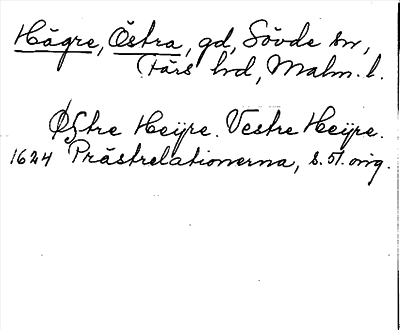 Hägre, Östra, gd, Sövde sn,
Färs hd, Malm. l.
Østre Heÿre. Vestre Heÿre.
1624 Prästrelationerna, s. 51. orig.